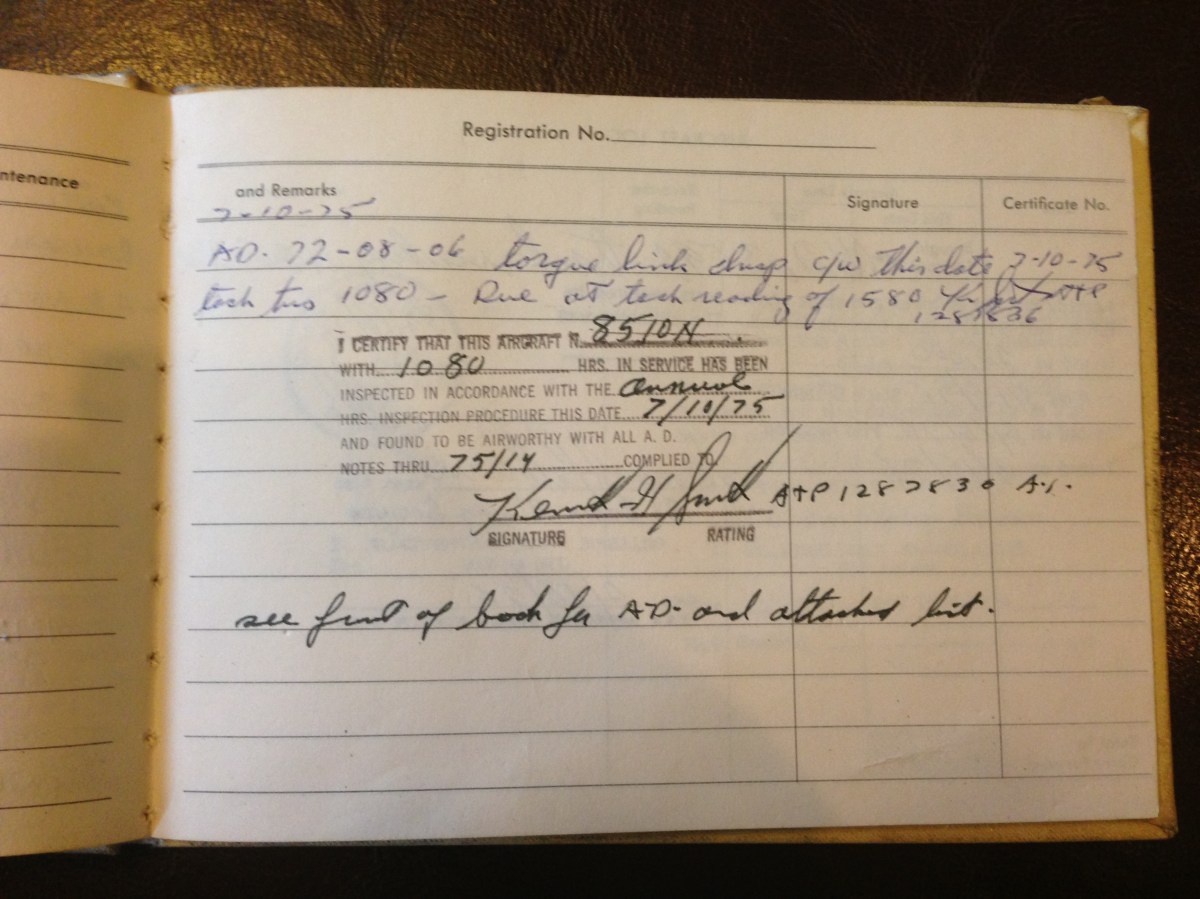 Registration No.
ntenance
and Remarks
Signature
Certificate No.
7-10-75
AD. 72-08-06 torque link insp c/w This date 7-10-75
tach two 1080 - Due at tach reading of 1580 A+P
I CERTIFY THAT THIS AIRCRAFT N. 8510N.
WITH 1080 HRS. IN SERVICE HAS BEEN
INSPECTED IN ACCORDANCE WITH THE annual
HRS. INSPECTION PROCEDURE THIS DATE 7/10/75
AND FOUND TO BE AIRWORTHY WITH ALL A. D.
NOTES THRU 75/14 COMPLIED TO
A+P 1287836 A.I.
SIGNATURE RATING
see front of book for AD. and attached list.